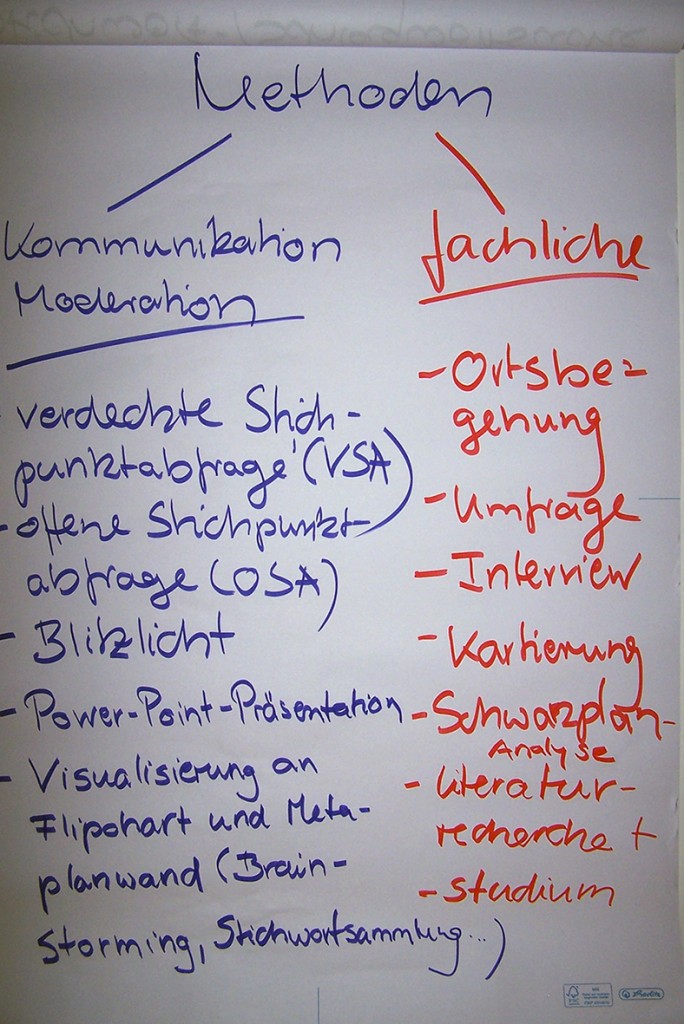 Methoden
Kommunikation
Moderation
- verdeckte Stich-
punktabfrage (VSA)
- offene Stichpunkt-
abfrage (OSA)
- Blitzlicht
- Power-Point-Präsentation
- Visualisierung an
Flipchart und Meta-
planwand (Brain-
storming, Stichwortsammlung...)
fachliche
- Ortsbe=
gehung
- Umfrage
- Interview
- Kartierung
- Schwarzplan-
Analyse
- Literatur-
recherche +
- studium